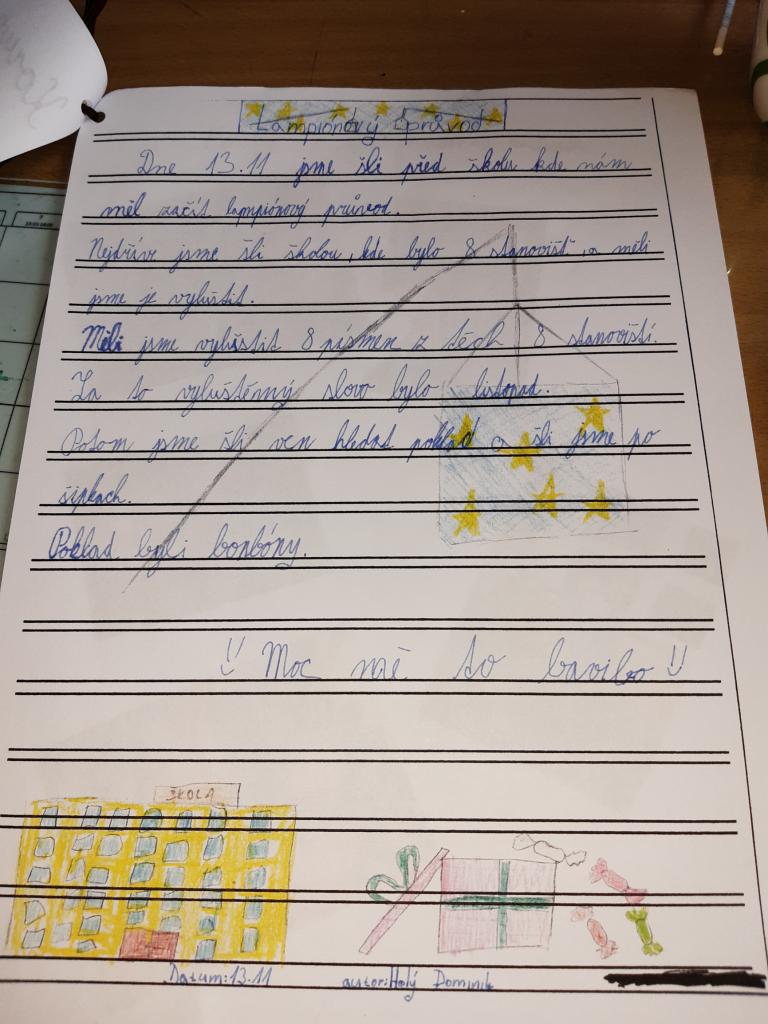 Lampiónový průvod
Dne 13.11 jsme šli před školu kde nám
měl začít lampiónový průvod.
Nejdříve jsme šli školou, kde bylo 8 stanovišť, a měli
jsme je vyluštit.
Měli jsme vyluštit 8 písmen z těch 8 stanovišť.
Za to vyluštěný slovo bylo listopad.
Potom jsme šli ven hledat poklad a šli jsme po
šipkach.
Poklad byli bonbóny.
!! Moc mě to bavilo !!
ŠKOLA
Datum:13.11 autor:Holý Dominik